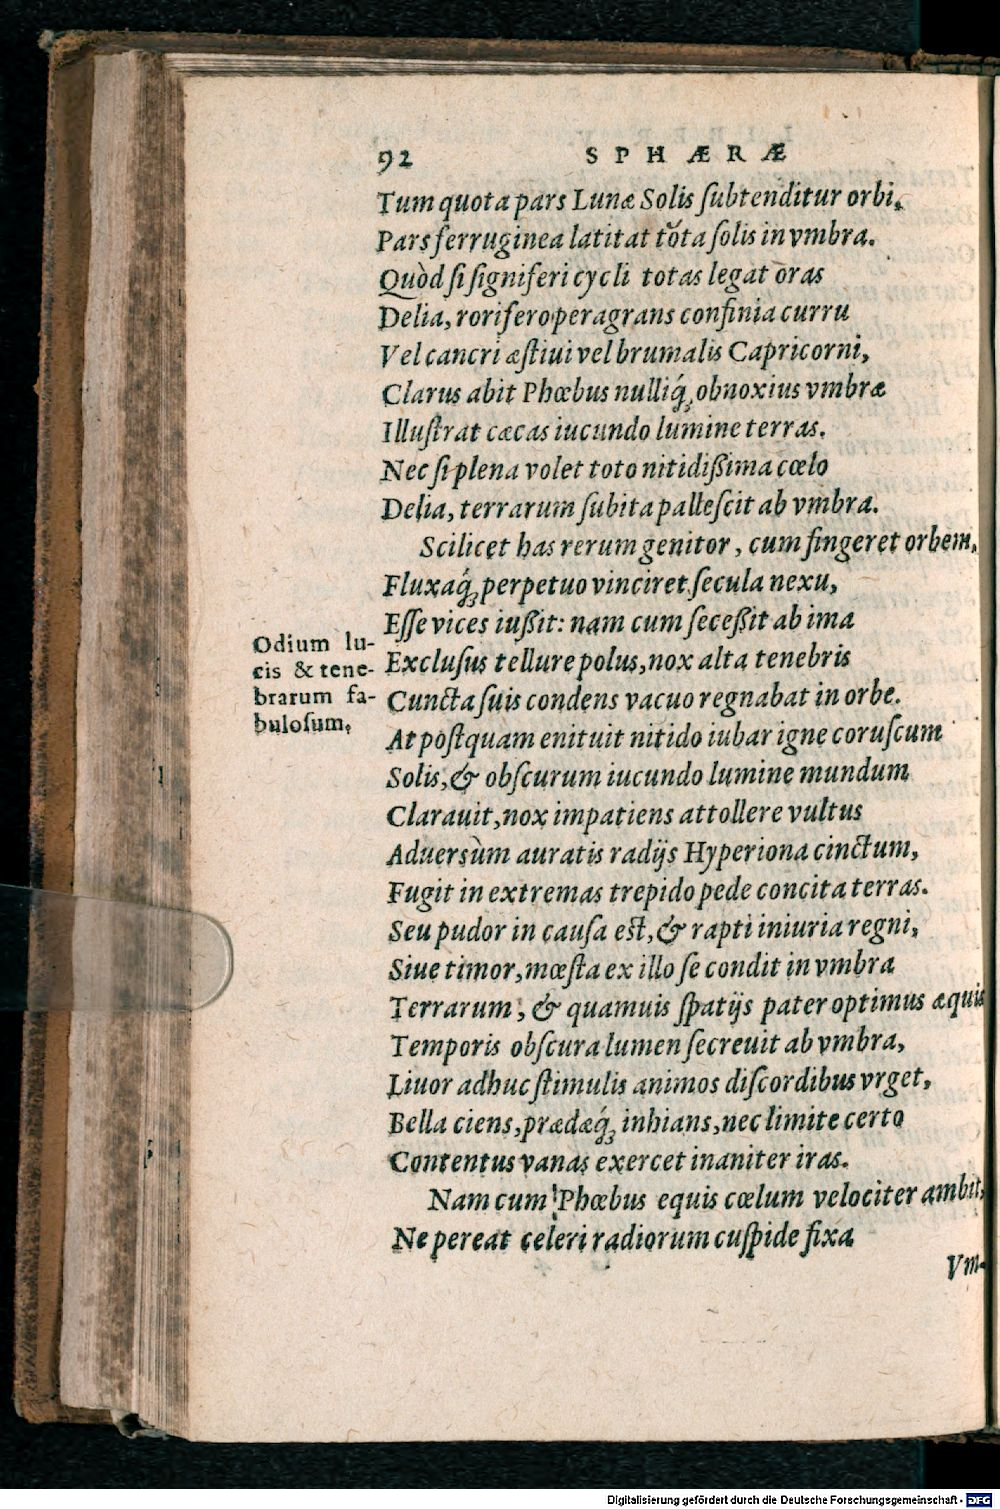 92 SPHÆRÆ
Tum quota pars Lunæ Solis ſubtenditur orbi,
Pars ferruginea latitat tota ſolis in vmbra.
Quòd ſi ſigniferi cycli totas legat oras
Delia, rorifero peragrans confinia curru
Vel cancri æſtiui vel brumalis Capricorni,
Clarus abit Phœbus nulliq́; obnoxius vmbræ
Illuſtrat cæcas iucundo lumine terras.
Nec ſi plena volet toto nitidißima cœlo
Delia, terrarum ſubita palleſcit ab vmbra.
Scilicet has rerum genitor, cum fingeret orbem,
Fluxaq́; perpetuo vinciret ſecula nexu,
Eſſe vices iußit: nam cum ſeceßit ab ima
Excluſus tellure polus, nox alta tenebris
Cuncta ſuis condens vacuo regnabat in orbe.
At poſtquam enituit nitido iubar igne coruſcum
Solis, & obſcurum iucundo lumine mundum
Clarauit, nox impatiens attollere vultus
Aduersùm auratis radijs Hyperiona cinctum,
Fugit in extremas trepido pede concita terras.
Seu pudor in cauſa eſt, & rapti iniuria regni,
Siue timor, mœſta ex illo ſe condit in vmbra
Terrarum, & quamuis ſpatijs pater optimus æquis
Temporis obſcura lumen ſecreuit ab vmbra,
Liuor adhuc ſtimulis animos diſcordibus vrget,
Bella ciens, prædæq́; inhians, nec limite certo
Contentus vanas exercet inaniter iras.
Nam cum Phœbus equis cœlum velociter ambit,
Ne pereat celeri radiorum cuſpide fixa
Vm-
Odium lu-
cis & tene-
brarum fa-
buloſum.
Digitalisierung gefördert durch die Deutsche Forschungsgemeinschaft - DFG